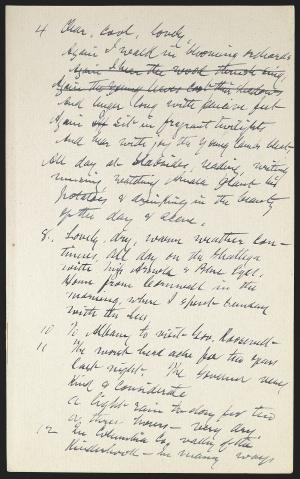 4 Clear, cool, lovely,
Again I walk in blooming orchards
Again I hear the wood thrush sing,
Again the young leaves cast their shadows
And linger long with pensive feet
Again I sit in fragrant twilights
And hear with joy the young lambs bleat.
All day at Slabsides, reading, writing
musing, watching plant his
potatoes & drinking in the beauty
of the day & scene.
8. Lovely, dry, warm weather con-
tinues, all day on the Shattega
with Miss Arnold &
Home from Cornwall in the
morning, where I spent Sunday
with the Lees
10 To Albany to visit Gov. Roosevelt-
11 The worst head ache for two years
last night. The Governor very
kind & considerate
a light rain to-day for two
or three hours - very dry.
12 In Columbia Co, valley of the
Kinderhook - in many ways